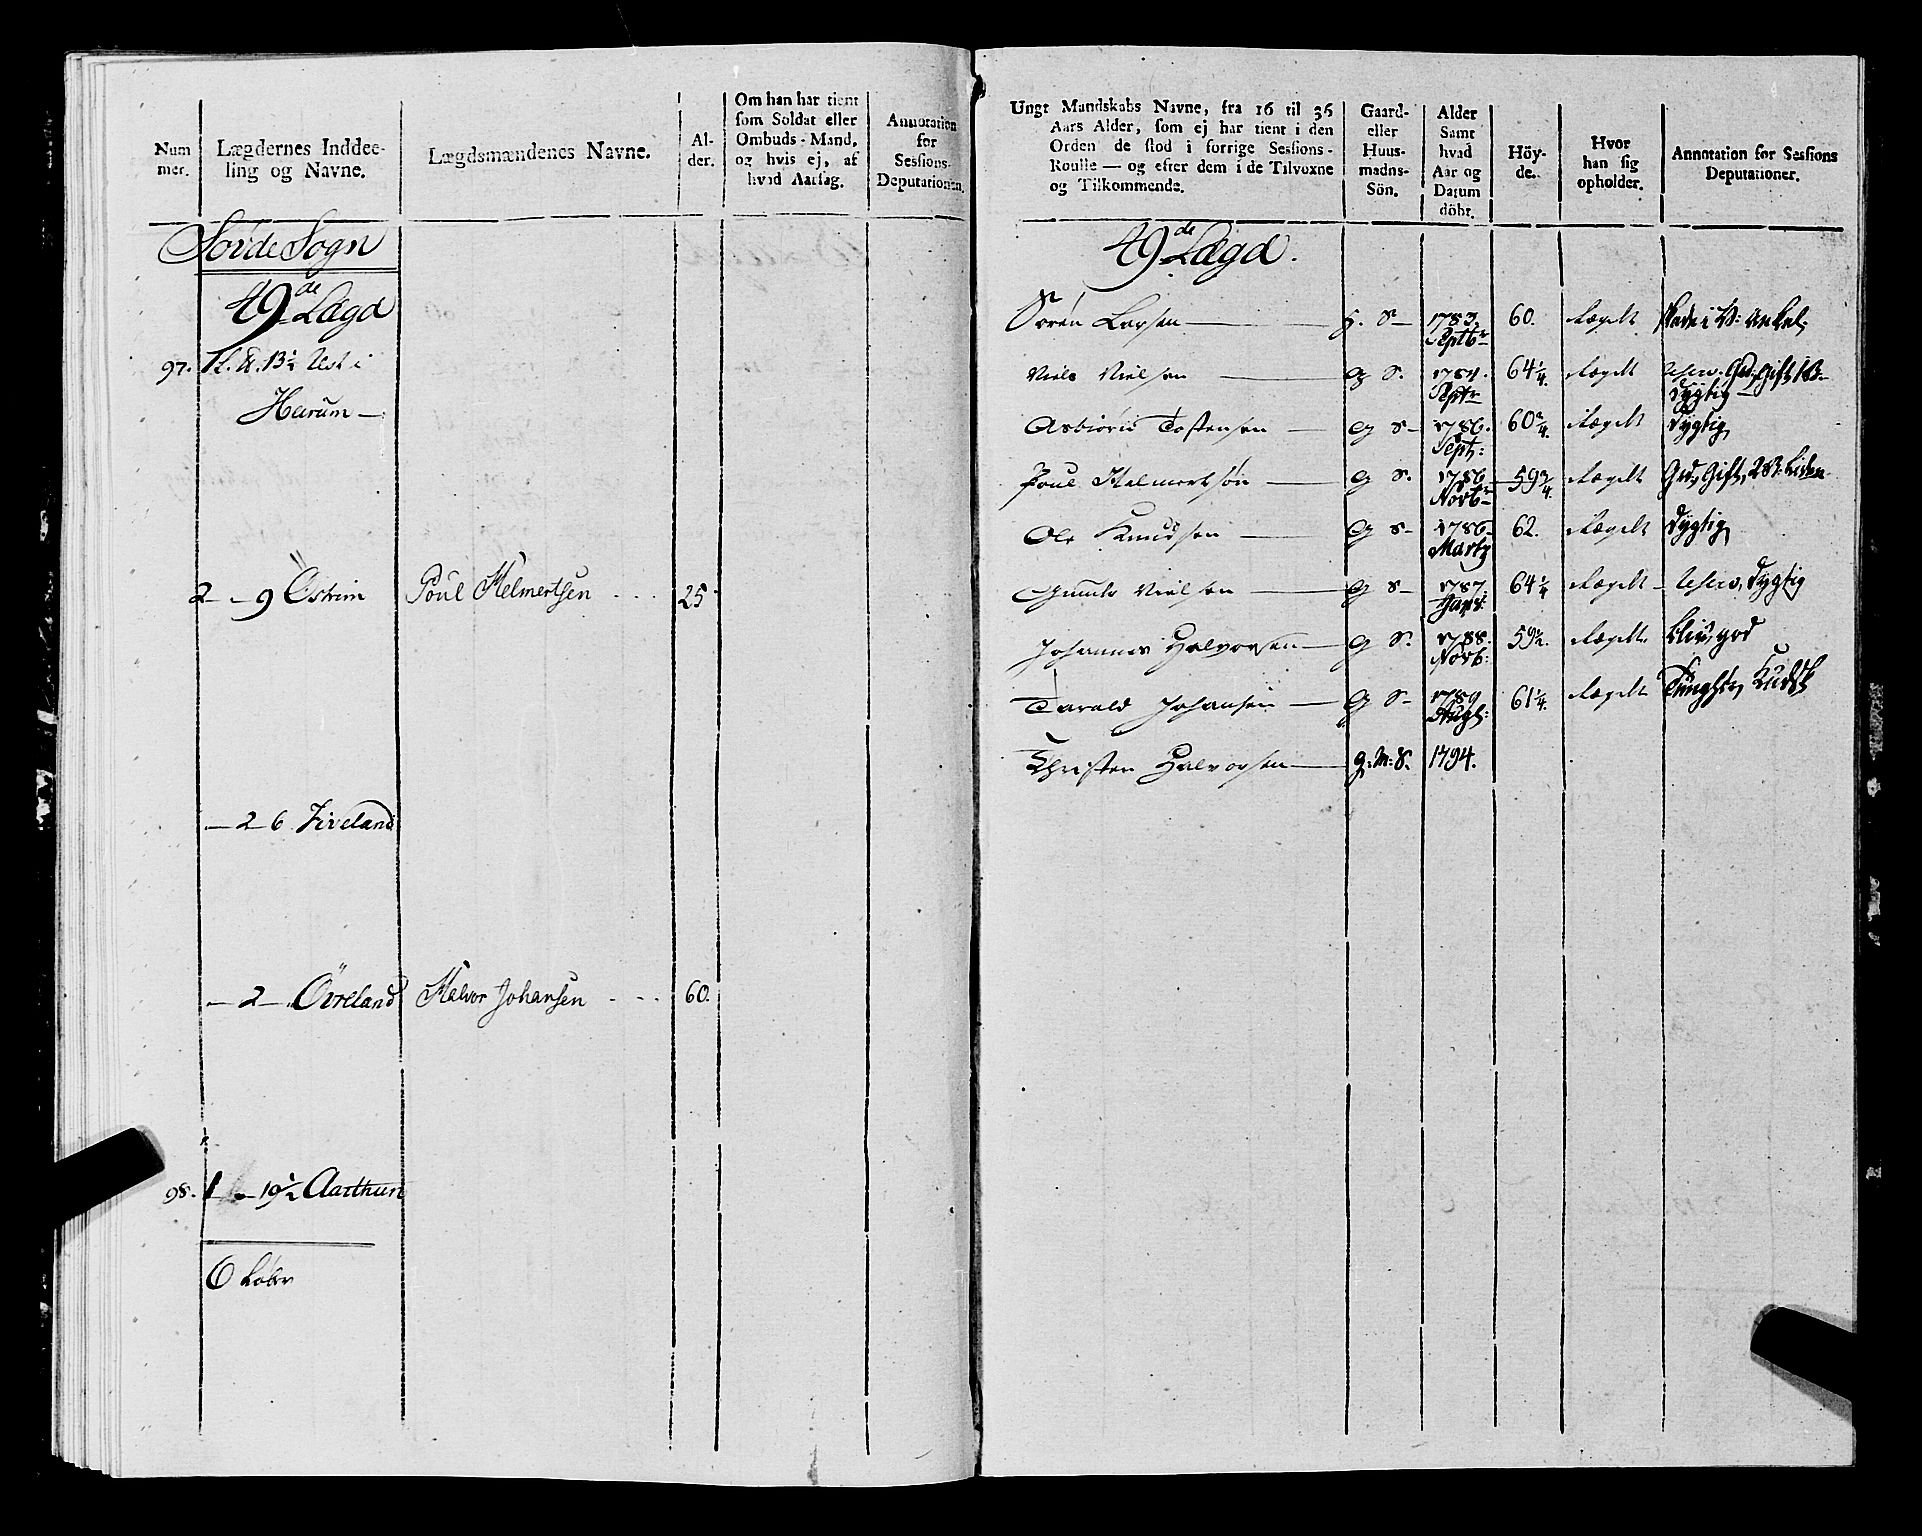 Num
mer.
Lægdernes Inddee-
ling og Navne.
Lægdsmændenes Navne.
Al-
der.
Om han har tient
som Soldat eller
Ombuds-Mand,
og hvis ej, af
hvad Aarsag.
Annotation
for
Sessions-
Deputationen.
Sörde Sogn
49de Lægd
97. 1 H. 13½ Ust i
Harum —
2 - - 9 Östrim Poul Helmertsen - - - 25
— 2 - 6 Fiveland
— 2 — Övreland Halvor Johansen - - - 60.
98. 1 - - 19½ Aarthun
6 Löber
Ungt Mandskabs Navne, fra 16 til 36
Aars Alder, som ej har tient i den
Orden de stod i forrige Sessions-
Roulle — og efter dem i de Tilvoxne
og Tilkommende.
Gaard-
eller
Huus-
mands-
Sön.
Alder
Samt
hvad
Aar og
Datum
döbt.
Höy-
de.
Hvor
han sig
opholder.
Annotation for Sessions
Deputationer.
49de Lægd.
Sören Larsen — H. S — 1783. Septbr 60. Lægdt Skade i V: Ankel,
Niels Nielsen — G S. 1784. Septr 64¼. Lægdt Gd. Gift 1 B—
Dygtig
Asbiörn Tostensen — G S — 1786. Sept: 60¾. Lægdt Dygtig
Poul Helmertsön — G S. 1786 Novbr 59¾. Lægdt Gd, Gift, 2 B: liden
Ole Knudsen — G S — 1786 Marty 62. Lægdt Dygtig
Gunder Nielsen — G S — 1787. Janr: 64¼ Lægdt — Dygtig
Johannes Halvorsen — G S. 1788. Novb: 59½. Lægdt.
Tarald Johansen — G S — 1789 Augs: 61¼. Lægdt
Christen Halvorsen — G: M: S. 1794.